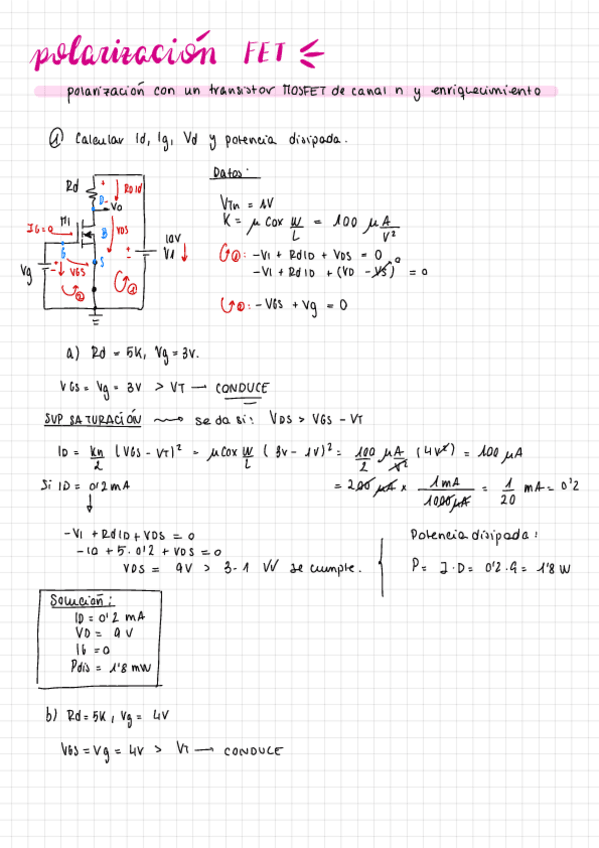 polarización FET
polarización con un transistor MOSFET de canal n y enriquecimiento
① Calcular Id, Ig, Vd y potencia disipada.
Rd + RDID
D Vo
M1
IG=0 B VDS
G S
10V
V1
Vg VGS
② ①
Datos:
VTn = 1V
K = μ Cox W/L = 100 μA/V²
①: -V1 + RdID + VDS = 0
-V1 + RdID + (VD - VS) = 0
0
②: -VGS + Vg = 0
a) Rd = 5K, Vg = 3V.
VGS = Vg = 3V > VT → CONDUCE
SUP SATURACIÓN → se da si: VDS > VGS - VT
ID = Kn/2 (VGS - VT)² = μCox W/L (3V - 1V)² = 100/2 μA/V² (4V²) = 100 μA
Si ID = 0'2 mA
= 200 μA × 1 mA/1000 μA = 1/20 mA = 0'2
-V1 + RdID + VDS = 0
-10 + 5·0'2 + VDS = 0
VDS = 9V > 3-1 VV se cumple.
Potencia disipada:
P = I·D = 0'2·9 = 1'8 W
Solución:
ID = 0'2 mA
VD = 9 V
IG = 0
Pdis = 1'8 mW
b) Rd = 5K, Vg = 4V
VGS = Vg = 4V > VT → CONDUCE